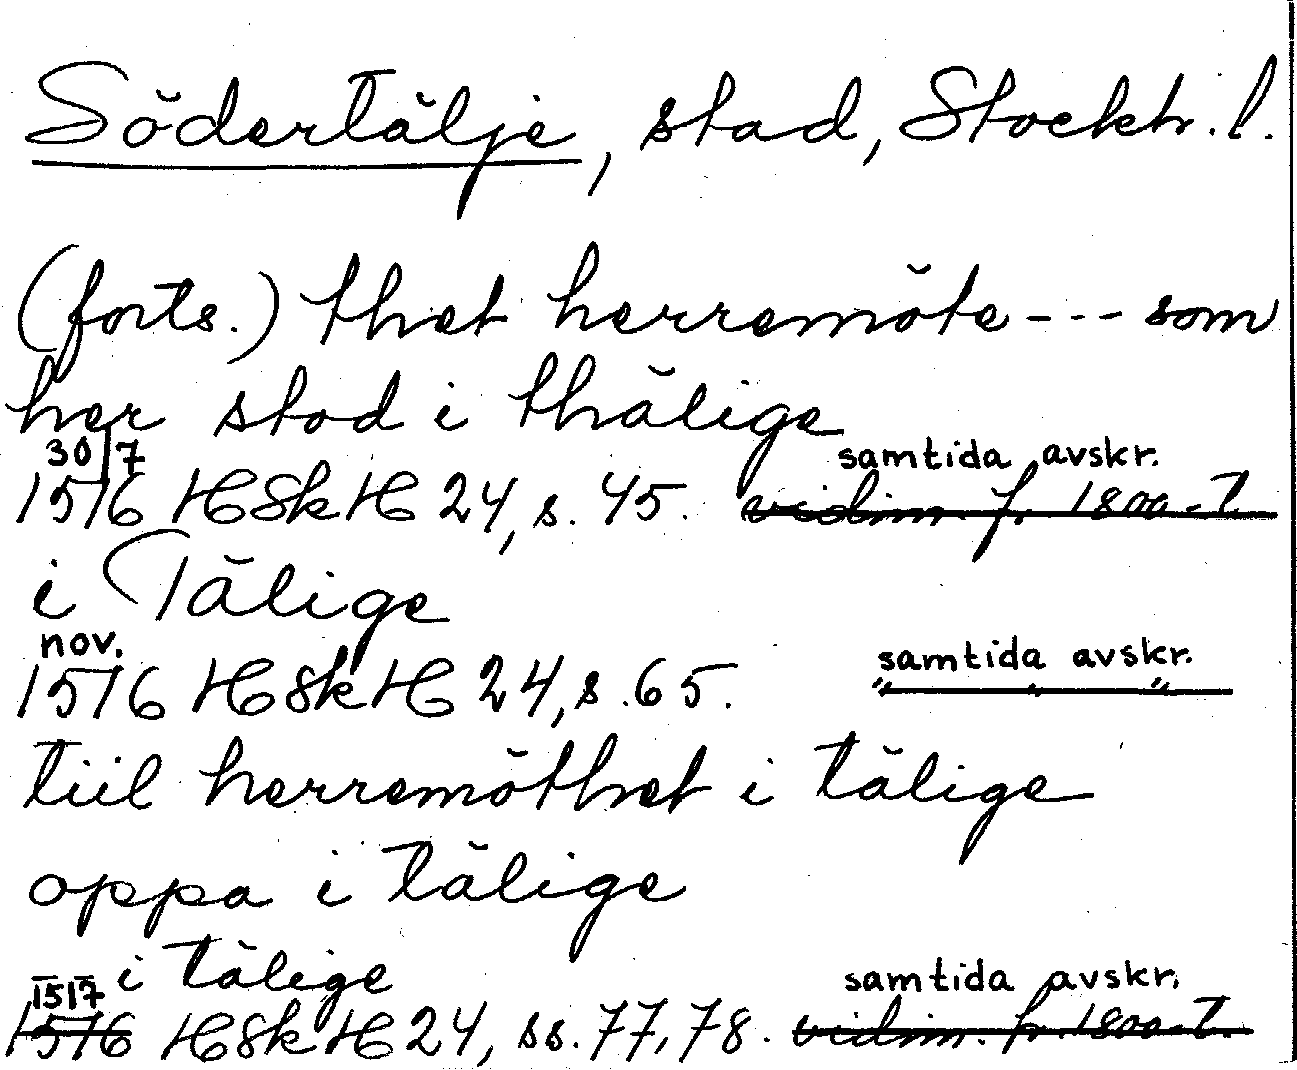 Södertälje, stad, Stockh. l.
(forts.) thet herremöte --- som
her stod i thälige
30/7 samtida avskr.
1516 HSkH 24, s. 45. vidim. fr. 1800-t.
i Tälige
nov. samtida avskr.
1516 HSkH 24, s. 65. " " "
tiil herremöthet i tälige
oppa i tälige
i tälige
1517 samtida avskr.
1516 HSkH 24, ss. 77, 78. vidim. fr. 1800-t.